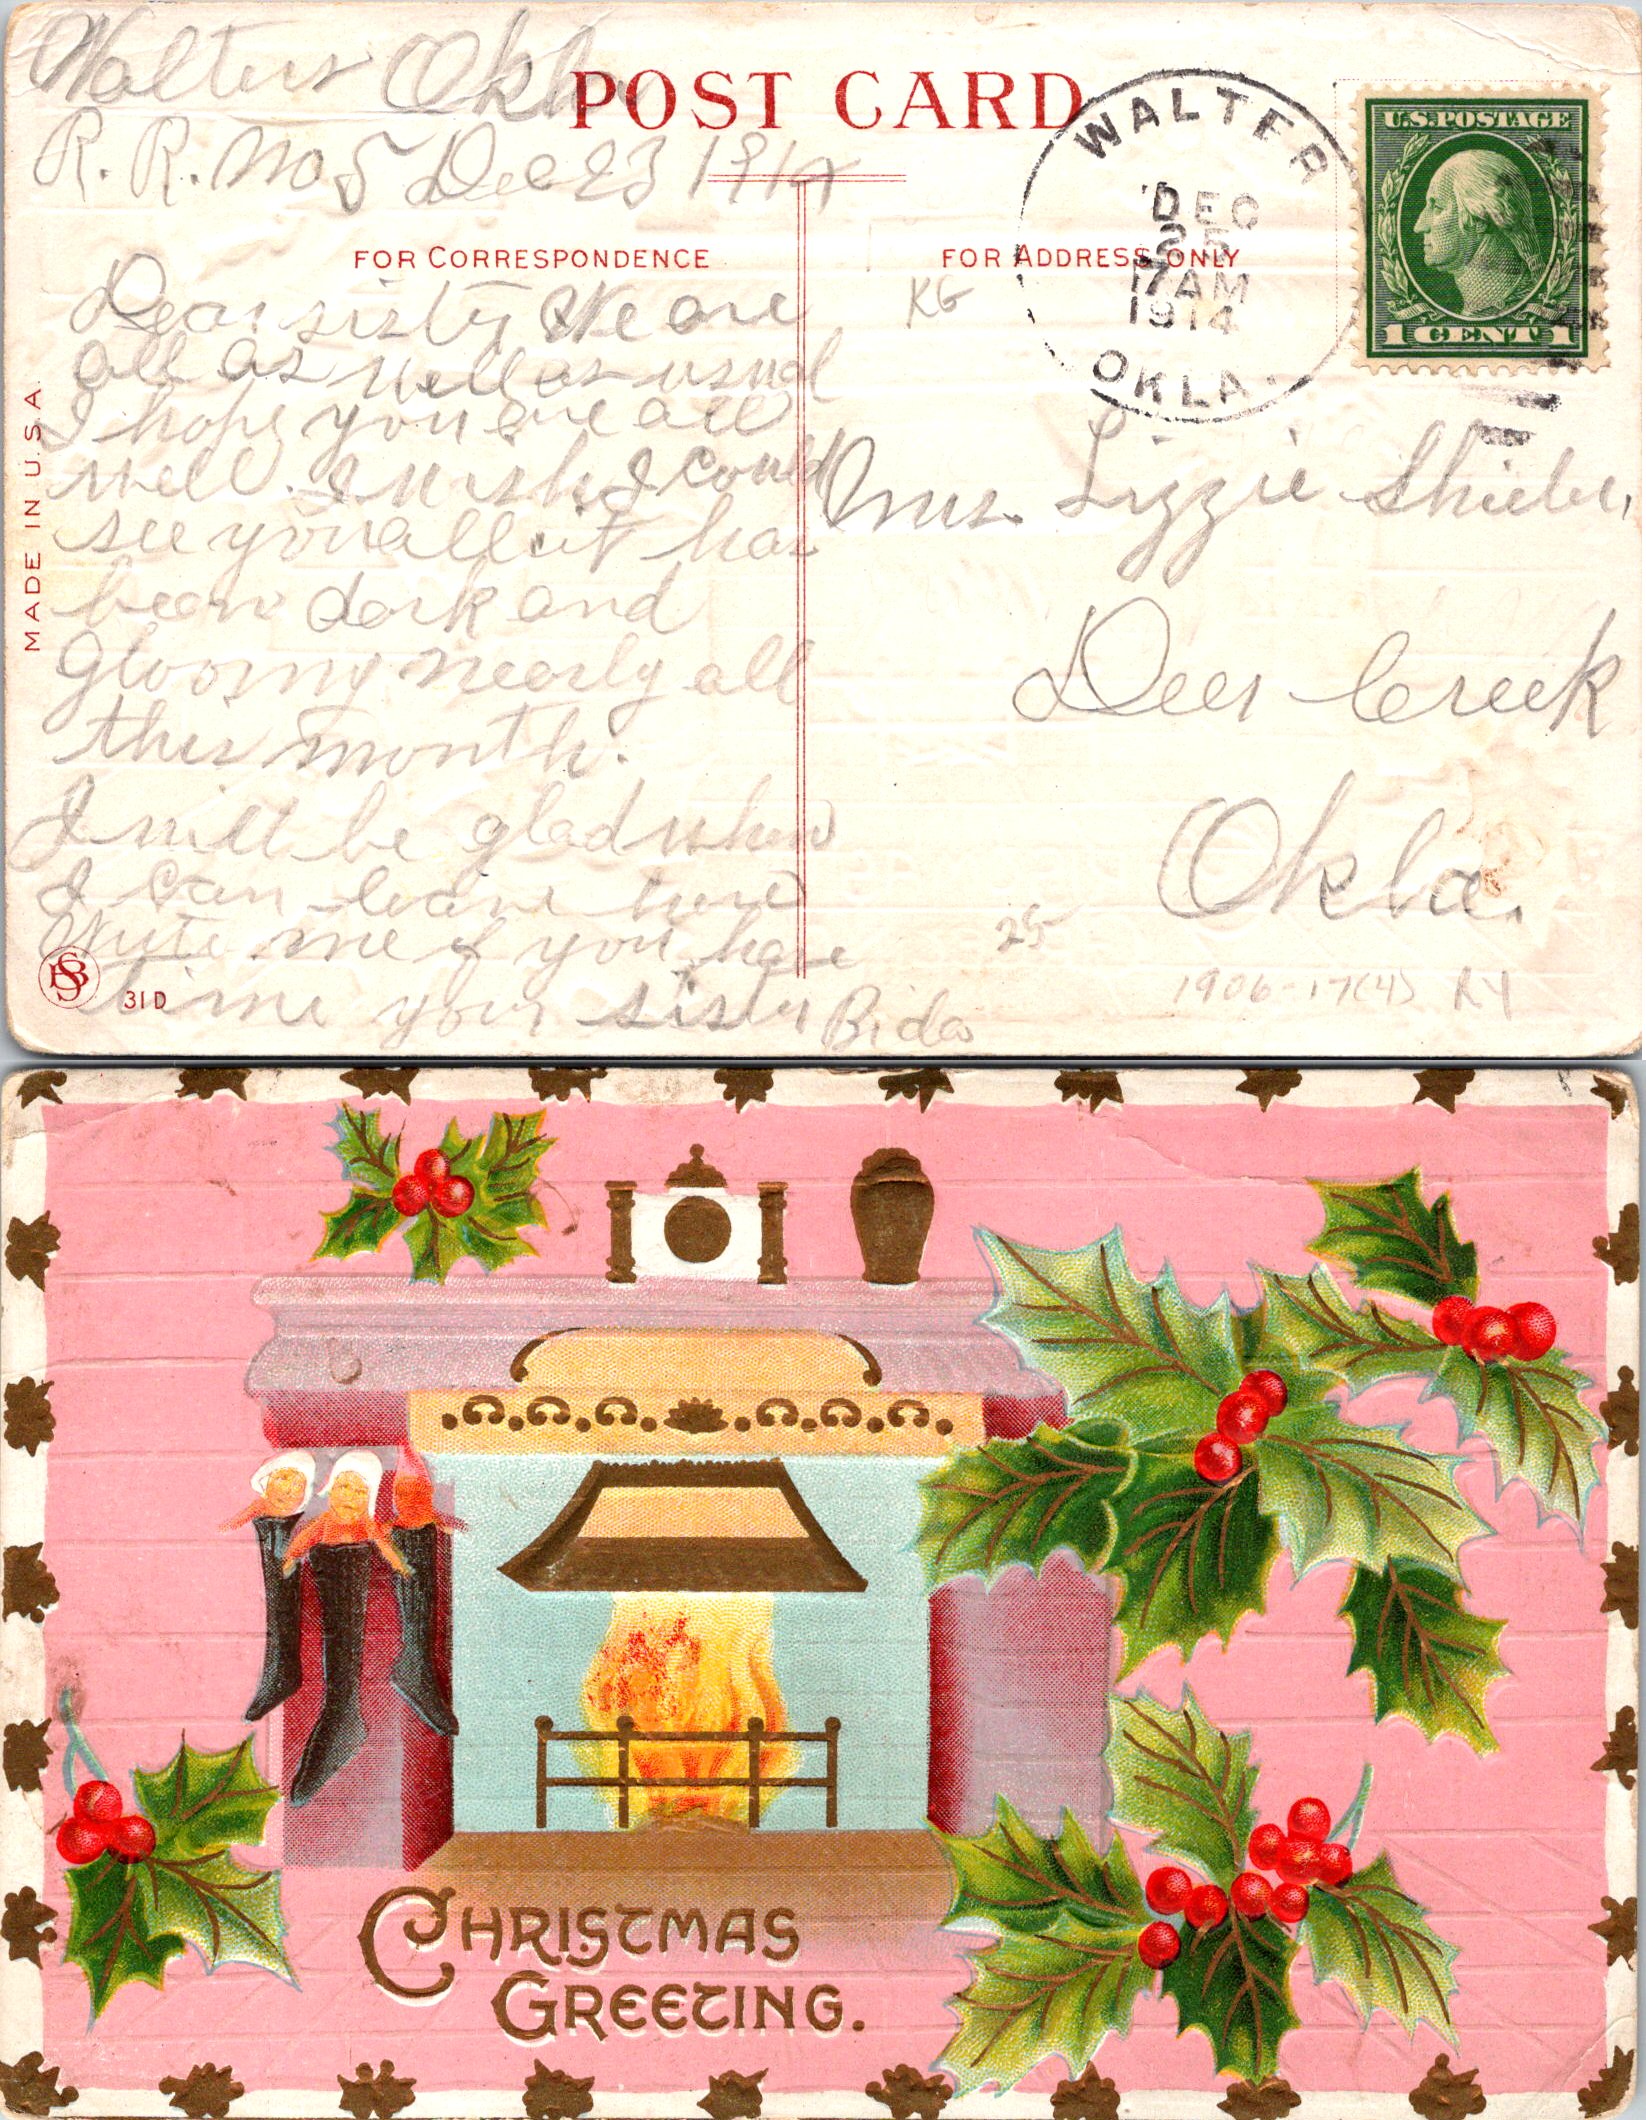 Walters Okla
R. R. No 5 Dec 23 1914
POST CARD
WALTER
DEC
25
7 AM
1914
OKLA.
U.S. POSTAGE
1 CENT 1
FOR CORRESPONDENCE
FOR ADDRESS ONLY
KG
Dear sister We are
all as well as usual
I hope you are all
well. I wish I could
see you all it has
been dark and
Gloomy nearly all
this month.
I will be glad when
I can leave here
Write me if you have
time your sister Bida
Mrs. Lizzie Shieber,
Deer Creek
Okla.
25
1906-17(4) RY
MADE IN U.S.A.
31 D
CHRISTMAS
GREETING.